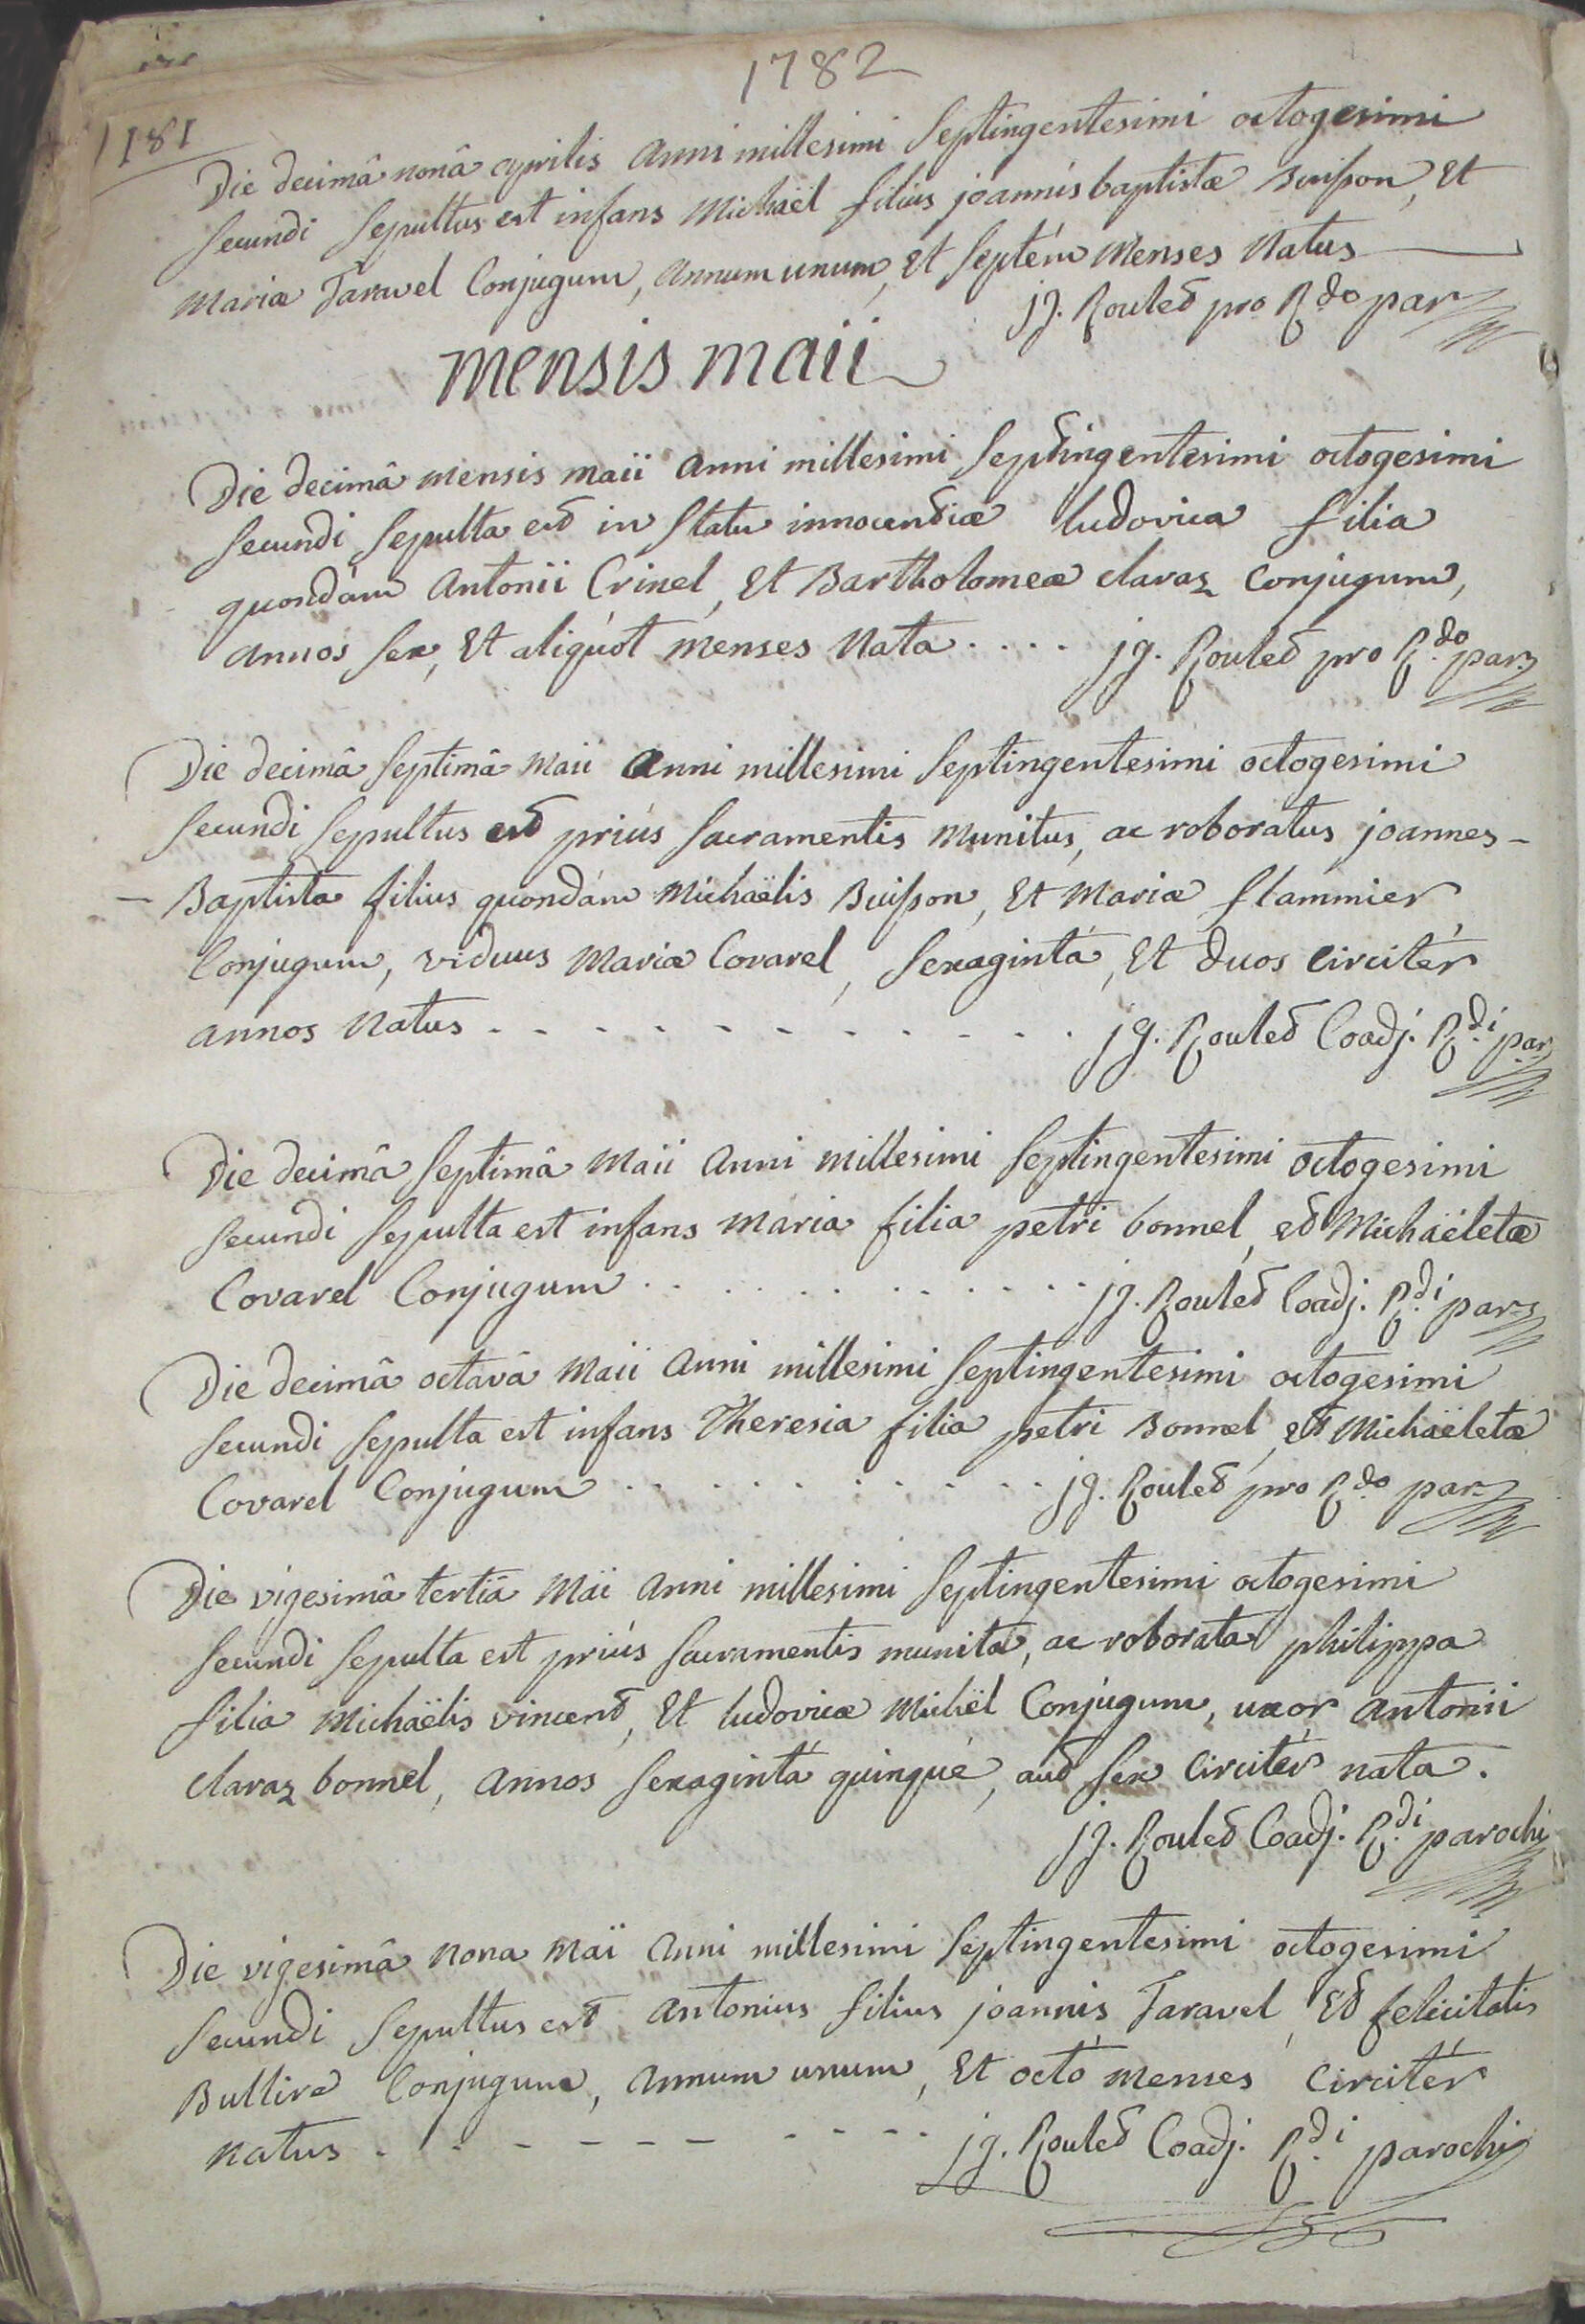 1782
1181
Die decimâ nonâ aprilis anni millesimi septingentesimi octogesimi
secundi sepultus est infans Michaël filius joannis baptistæ Buisson, et
Mariæ Taravel Conjugum, annum unum, et septém menses natus
jg. Rouled pro Rdo par
mensis maii
Die decimâ mensis maii anni millesimi septingentesimi octogesimi
secundi sepulta est in statu innocentiæ ludovica filia
quondám antonii Crinel, et Bartholomeæ claraz conjugum,
annos sex, et aliquót menses nata .... jg. Rouled pro R.do par
Die decimâ septimâ maii anni millesimi septingentesimi octogesimi
secundi sepultus est priús sacramentis munitus, ac roboratus joannes-
-Baptista filius quondám Michaëlis Buisson, et Mariæ flammier
Conjugum, viduus Mariæ Covarel, sexagintá, et duos circitér
annos natus - - - - - - - - - - jg. Rouled Coadj. R.di par
Die decimâ septimâ maii anni millesimi septingentesimi octogesimi
secundi sepulta est infans maria filia petri bonnel, et Michaëletæ
Covarel Conjugum . . . . . . . . . . jg. Rouled Coadj. R.di par
Die decimâ octavâ maii anni millesimi septingentesimi octogesimi
secundi sepulta est infans Theresia filia petri Bonnel, et Michaëletæ
Covarel Conjugum . . . . . . . . . jg. Rouled pro R.do par
Die vigesimâ tertiâ maii anni millesimi septingentesimi octogesimi
secundi sepulta est priús sacramentis munita, ac roborata philippa
filia Michaëlis vincend, et ludovicæ Michël Conjugum, uxor antonii
claraz bonnel, annos sexagintá quinqué, aut sex circitér nata.
jg. Rouled Coadj. R.di parochi
Die vigesimâ nona maii anni millesimi septingentesimi octogesimi
secundi sepultus est antonius filius joannis Taravel, et felicitatis
Bullire Conjugum, annum unum, et octó menses circitér
natus . - - - - - - - - - jg. Rouled Coadj. R.di parochi